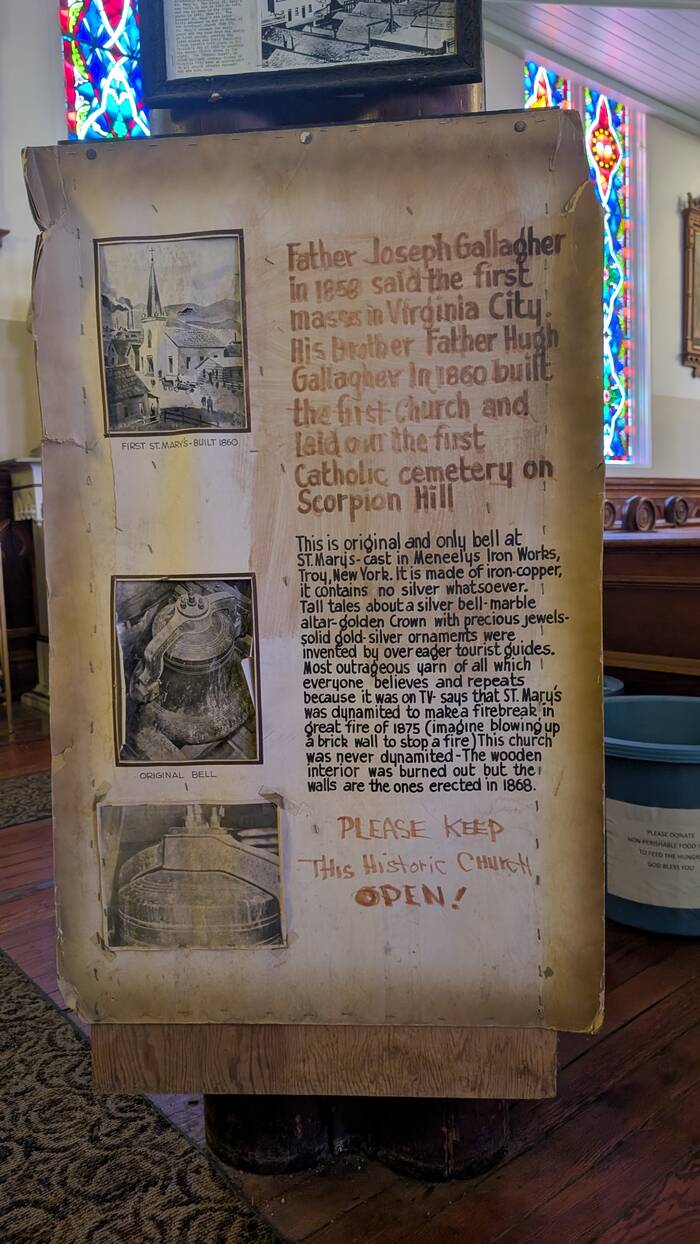 Father Joseph Gallagher
in 1858 said the first
masses in Virginia City.
His brother Father Hugh
Gallagher in 1860 built
the first church and
laid out the first
Catholic cemetery on
Scorpion Hill
FIRST ST. MARY'S-BUILT 1860
This is original and only bell at
ST. Mary's-cast in Meneelys Iron Works,
Troy, New York. It is made of iron-copper,
it contains no silver whatsoever.
Tall tales about a silver bell-marble
altar-golden Crown with precious jewels-
solid gold-silver ornaments were
invented by over eager tourist guides.
Most outrageous yarn of all which
everyone believes and repeats
because it was on TV- says that ST. Mary's
was dynamited to make a firebreak in
great fire of 1875 (imagine blowing up
a brick wall to stop a fire) This church
was never dynamited-The wooden
interior was burned out but the
walls are the ones erected in 1868.
ORIGINAL BELL
PLEASE KEEP
THis Historic CHurcH
OPEN!
PLEASE DONATE
NON PERISHABLE FOOD
TO FEED THE HUNGR
GOD BLESS YOU